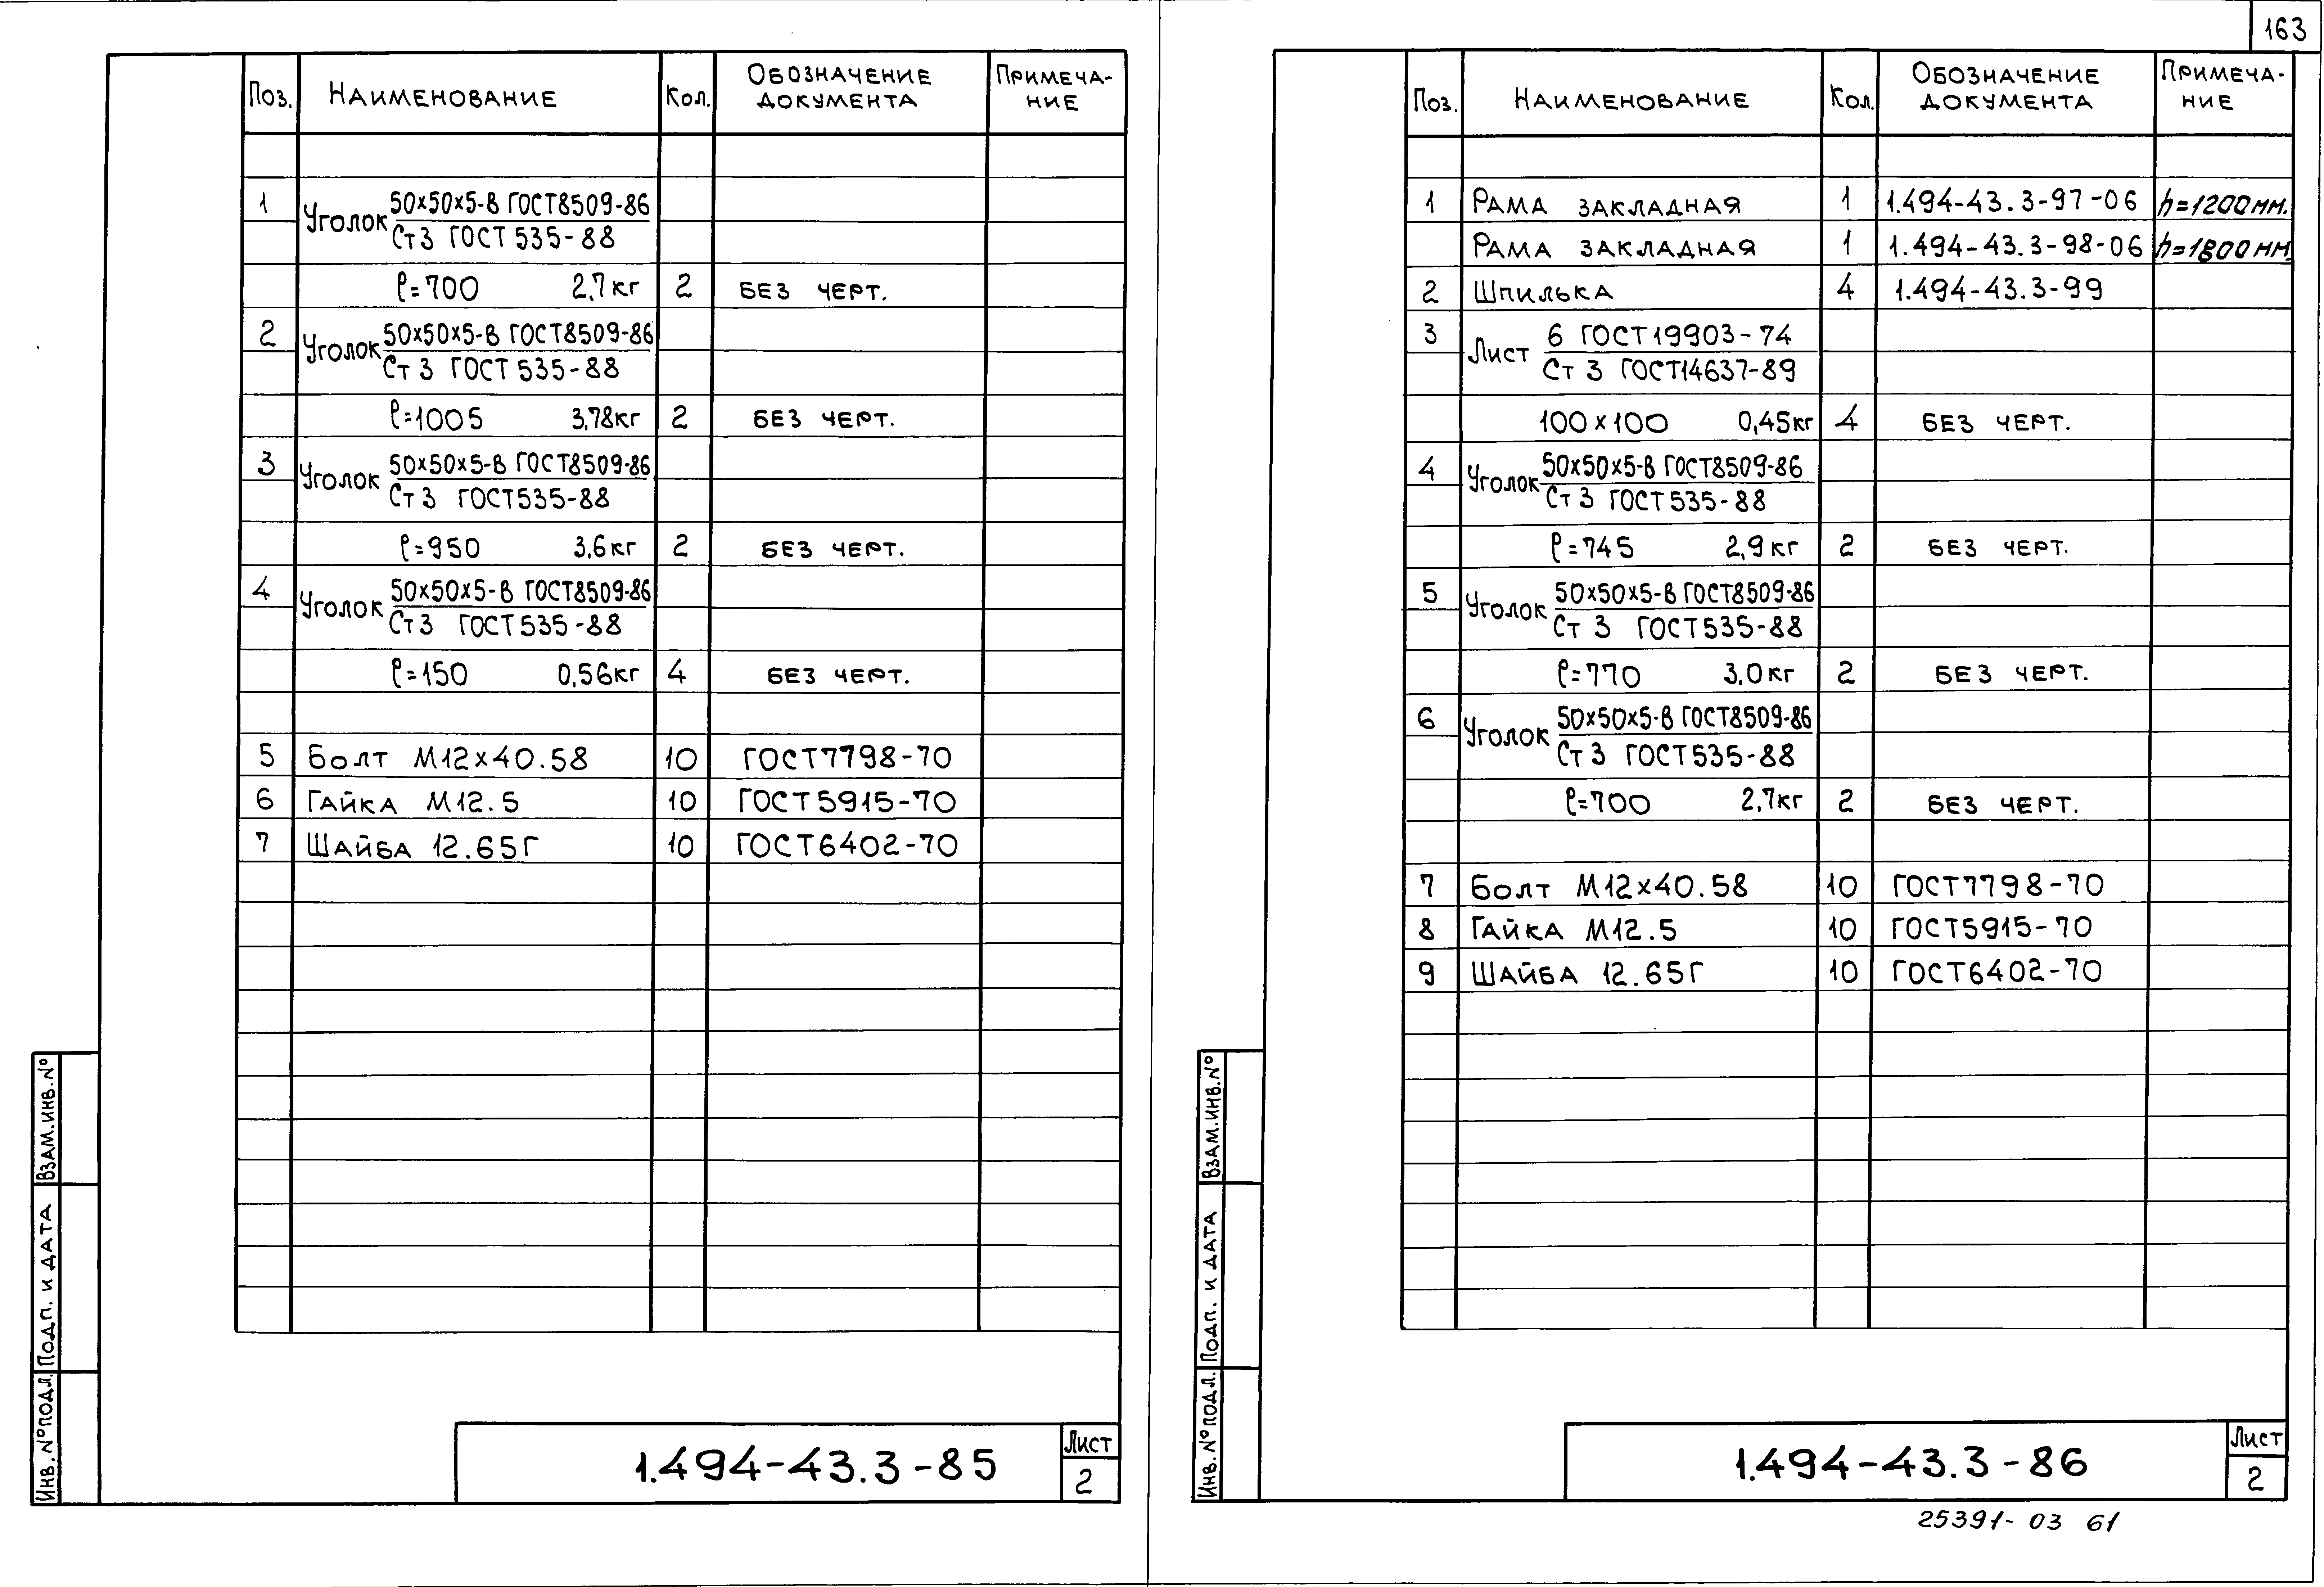 163
Поз. Наименование Кол. Обозначение документа Примеча-ние
1 Уголок 50х50х5-В ГОСТ8509-86
Ст3 ГОСТ 535-88
ℓ=700 2,7кг 2 без черт.
2 Уголок 50х50х5-В ГОСТ8509-86
Ст 3 ГОСТ 535-88
ℓ=1005 3,78кг 2 без черт.
3 Уголок 50х50х5-В ГОСТ8509-86
Ст 3 ГОСТ535-88
ℓ=950 3,6кг 2 без черт.
4 Уголок 50х50х5-В ГОСТ8509-86
Ст3 ГОСТ535-88
ℓ=150 0,56кг 4 без черт.
5 Болт М12х40.58 10 ГОСТ7798-70
6 Гайка М12.5 10 ГОСТ5915-70
7 Шайба 12.65Г 10 ГОСТ6402-70
Инв. №подл. Подп. и дата Взам.инв.№
1.494-43.3-85
Лист
2
Поз. Наименование Кол. Обозначение документа Примеча-ние
1 Рама закладная 1 1.494-43.3-97-06 h=1200мм.
Рама закладная 1 1.494-43.3-98-06 h=1800мм.
2 Шпилька 4 1.494-43.3-99
3 Лист 6 ГОСТ19903-74
Ст 3 ГОСТ14637-89
100х100 0,45кг 4 без черт.
4 Уголок 50х50х5-В ГОСТ8509-86
Ст 3 ГОСТ535-88
ℓ=745 2,9кг 2 без черт.
5 Уголок 50х50х5-В ГОСТ8509-86
Ст 3 ГОСТ535-88
ℓ=770 3,0кг 2 без черт.
6 Уголок 50х50х5-В ГОСТ8509-86
Ст 3 ГОСТ535-88
ℓ=700 2,7кг 2 без черт.
7 Болт М12х40.58 10 ГОСТ7798-70
8 Гайка М12.5 10 ГОСТ5915-70
9 Шайба 12.65Г 10 ГОСТ6402-70
Инв. №подл. Подп. и дата Взам.инв.№
1.494-43.3-86
Лист
2
25391-03 61